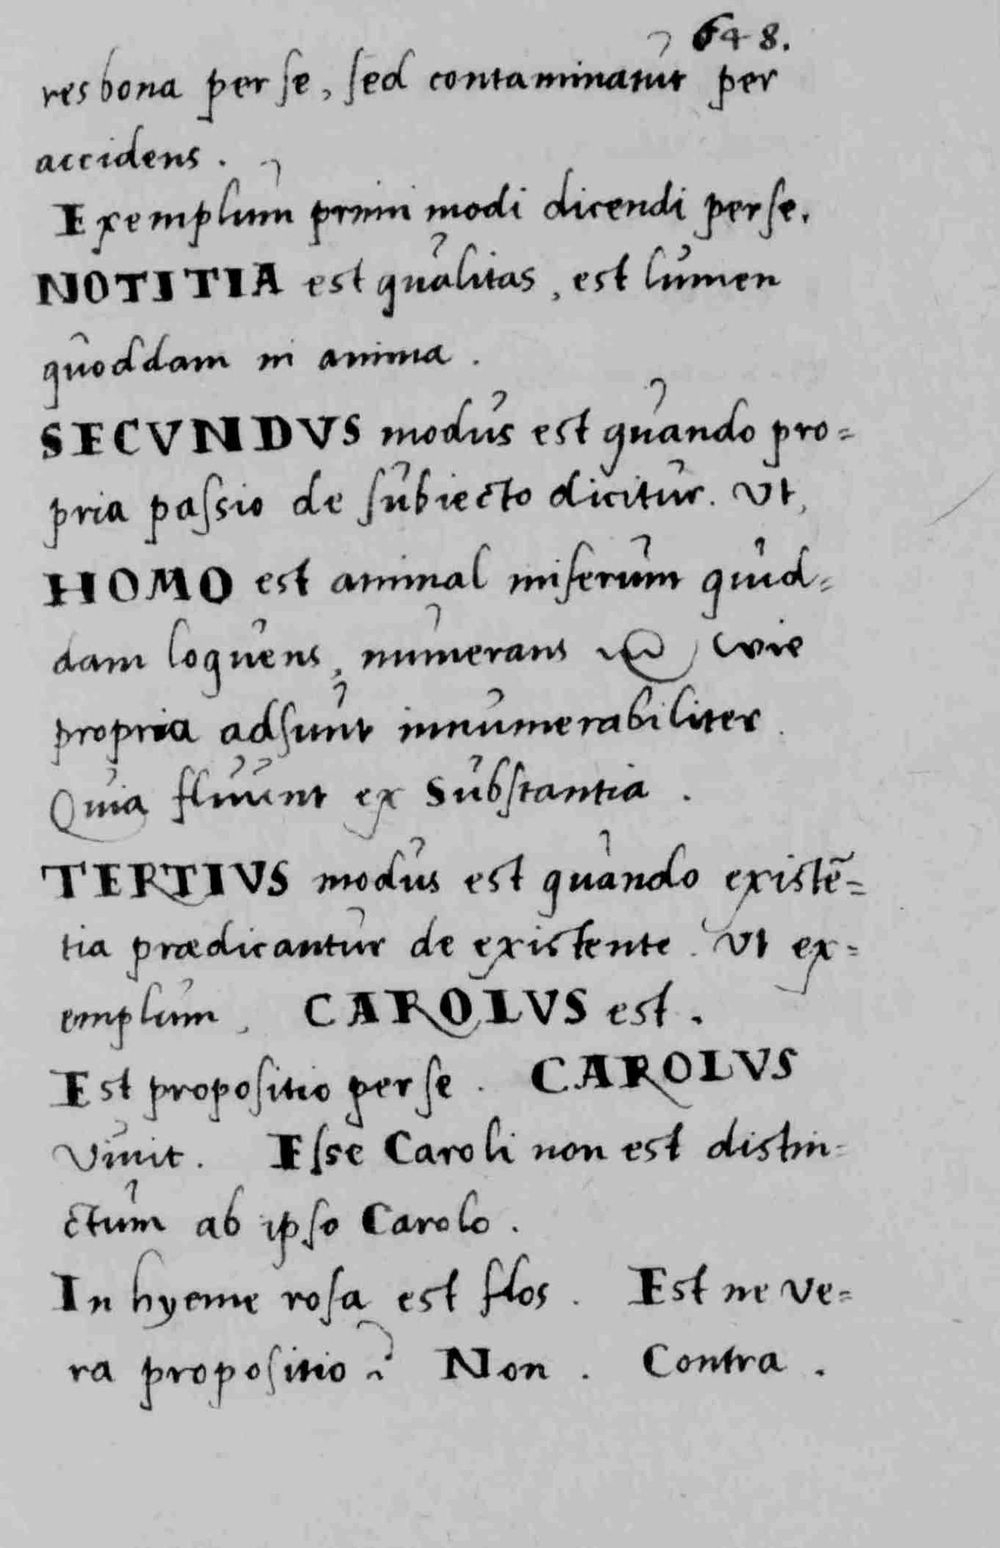 648.
res bona per se, sed contaminatur per
accidens.
Exemplum primi modi dicendi per se.
NOTITIA est qualitas, est lumen
quoddam in anima.
SECVNDVS modus est quando pro=
pria passio de subiecto dicitur. Ut,
HOMO est animal miserum quid=
dam loquens, numerans wie
propria adsunt innumerabiliter.
Quia fluunt ex Substantia.
TERTIVS modus est quando existē=
tia prædicantur de existente. Ut ex=
emplum, CAROLVS est.
Est propositio per se. CAROLVS
Viuit. Esse Caroli non est distin=
ctum ab ipso Carolo.
In hyeme rosa est flos. Est ne ve=
ra propositio? Non. Contra.